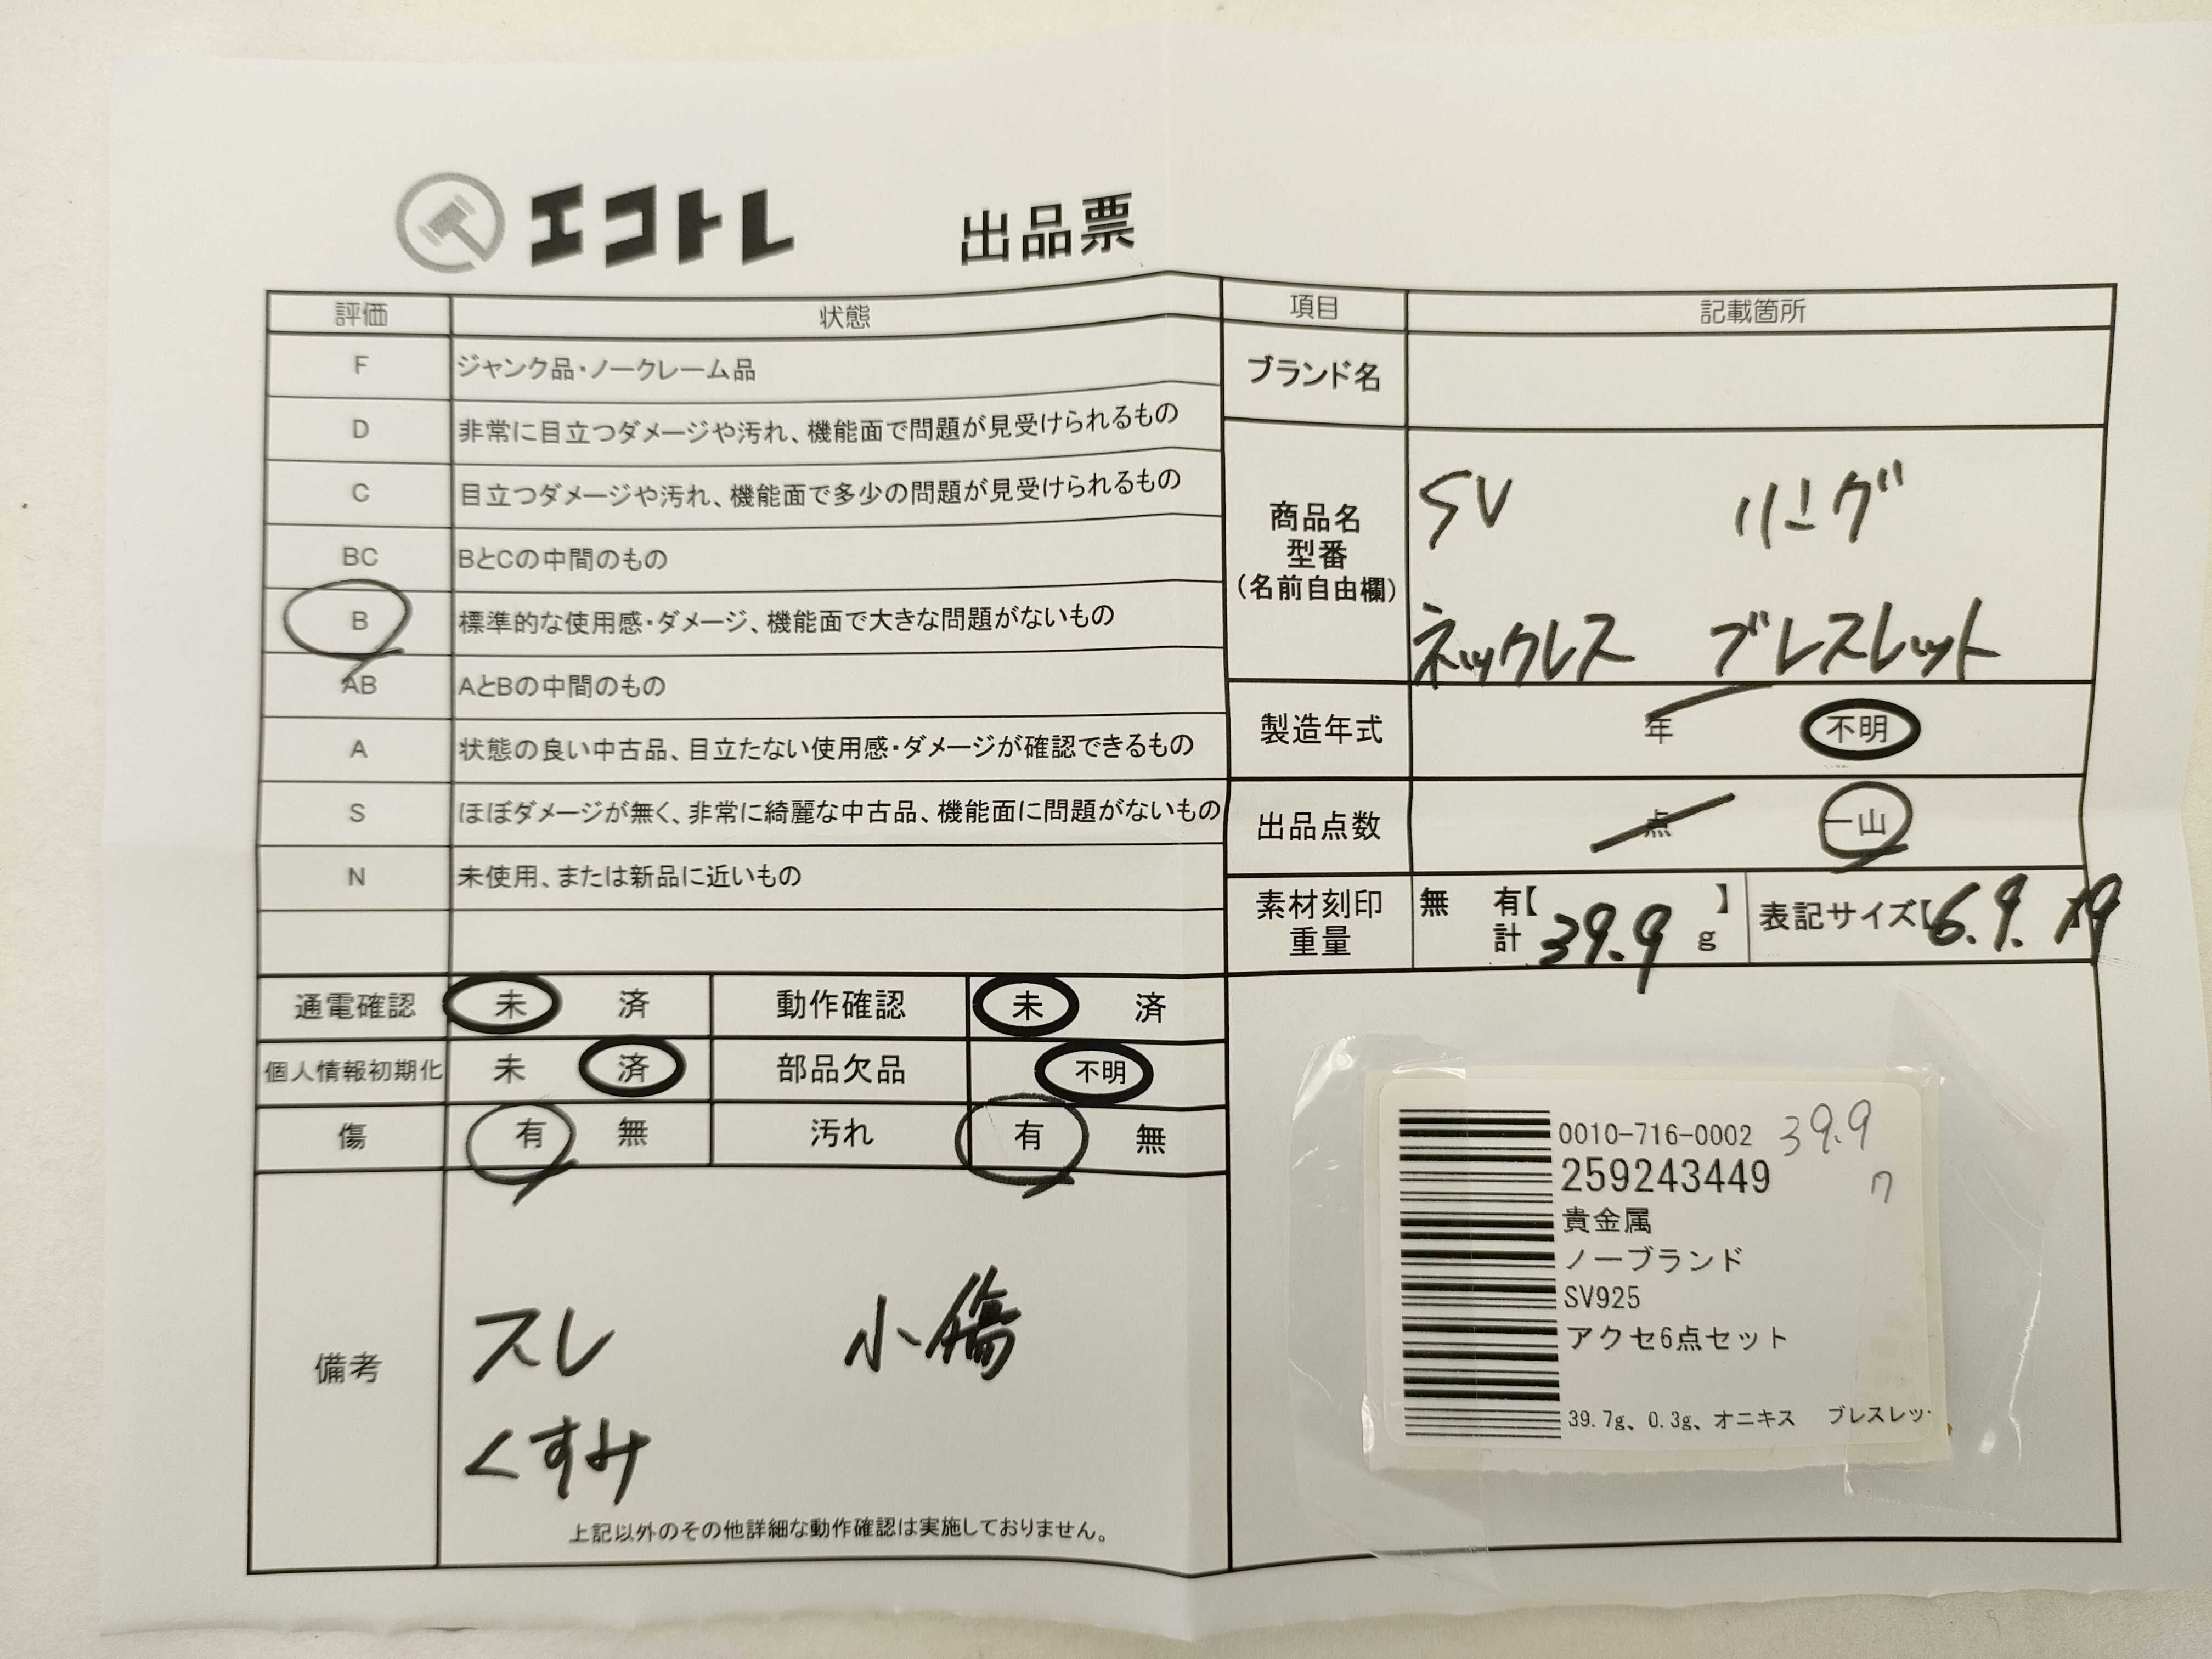 エコトレ 出品票
評価 状態
F ジャンク品・ノークレーム品
D 非常に目立つダメージや汚れ、機能面で問題が見受けられるもの
C 目立つダメージや汚れ、機能面で多少の問題が見受けられるもの
BC BとCの中間のもの
B 標準的な使用感・ダメージ、機能面で大きな問題がないもの
AB AとBの中間のもの
A 状態の良い中古品、目立たない使用感・ダメージが確認できるもの
S ほぼダメージが無く、非常に綺麗な中古品、機能面に問題がないもの
N 未使用、または新品に近いもの
通電確認 未 済 動作確認 未 済
個人情報初期化 未 済 部品欠品 不明
傷 有 無 汚れ 有 無
備考
スレ 小傷
くすみ
上記以外のその他詳細な動作確認は実施しておりません。
項目 記載箇所
ブランド名
商品名
型番
(名前自由欄)
SV リング
ネックレス ブレスレット
製造年式 年 不明
出品点数 点 一山
素材刻印 無 有【 】
重量 計 39.9 g
表記サイズ【6.9.
0010-716-0002 39.9
259243449
貴金属
ノーブランド
SV925
アクセ6点セット
39.7g、0.3g、オニキス ブレスレッ